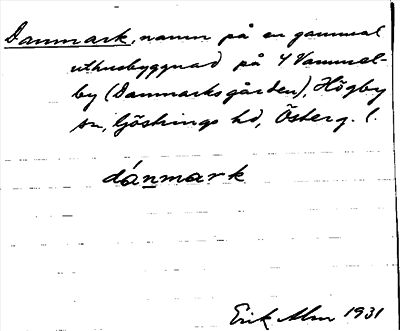 Danmark, namn på en gammal
uthusbyggnad på Y Vammel-
by (Danmarksgården), Högby
sn, Göstrings hd, Österg. l.
dánmark
Erik Alm 1931